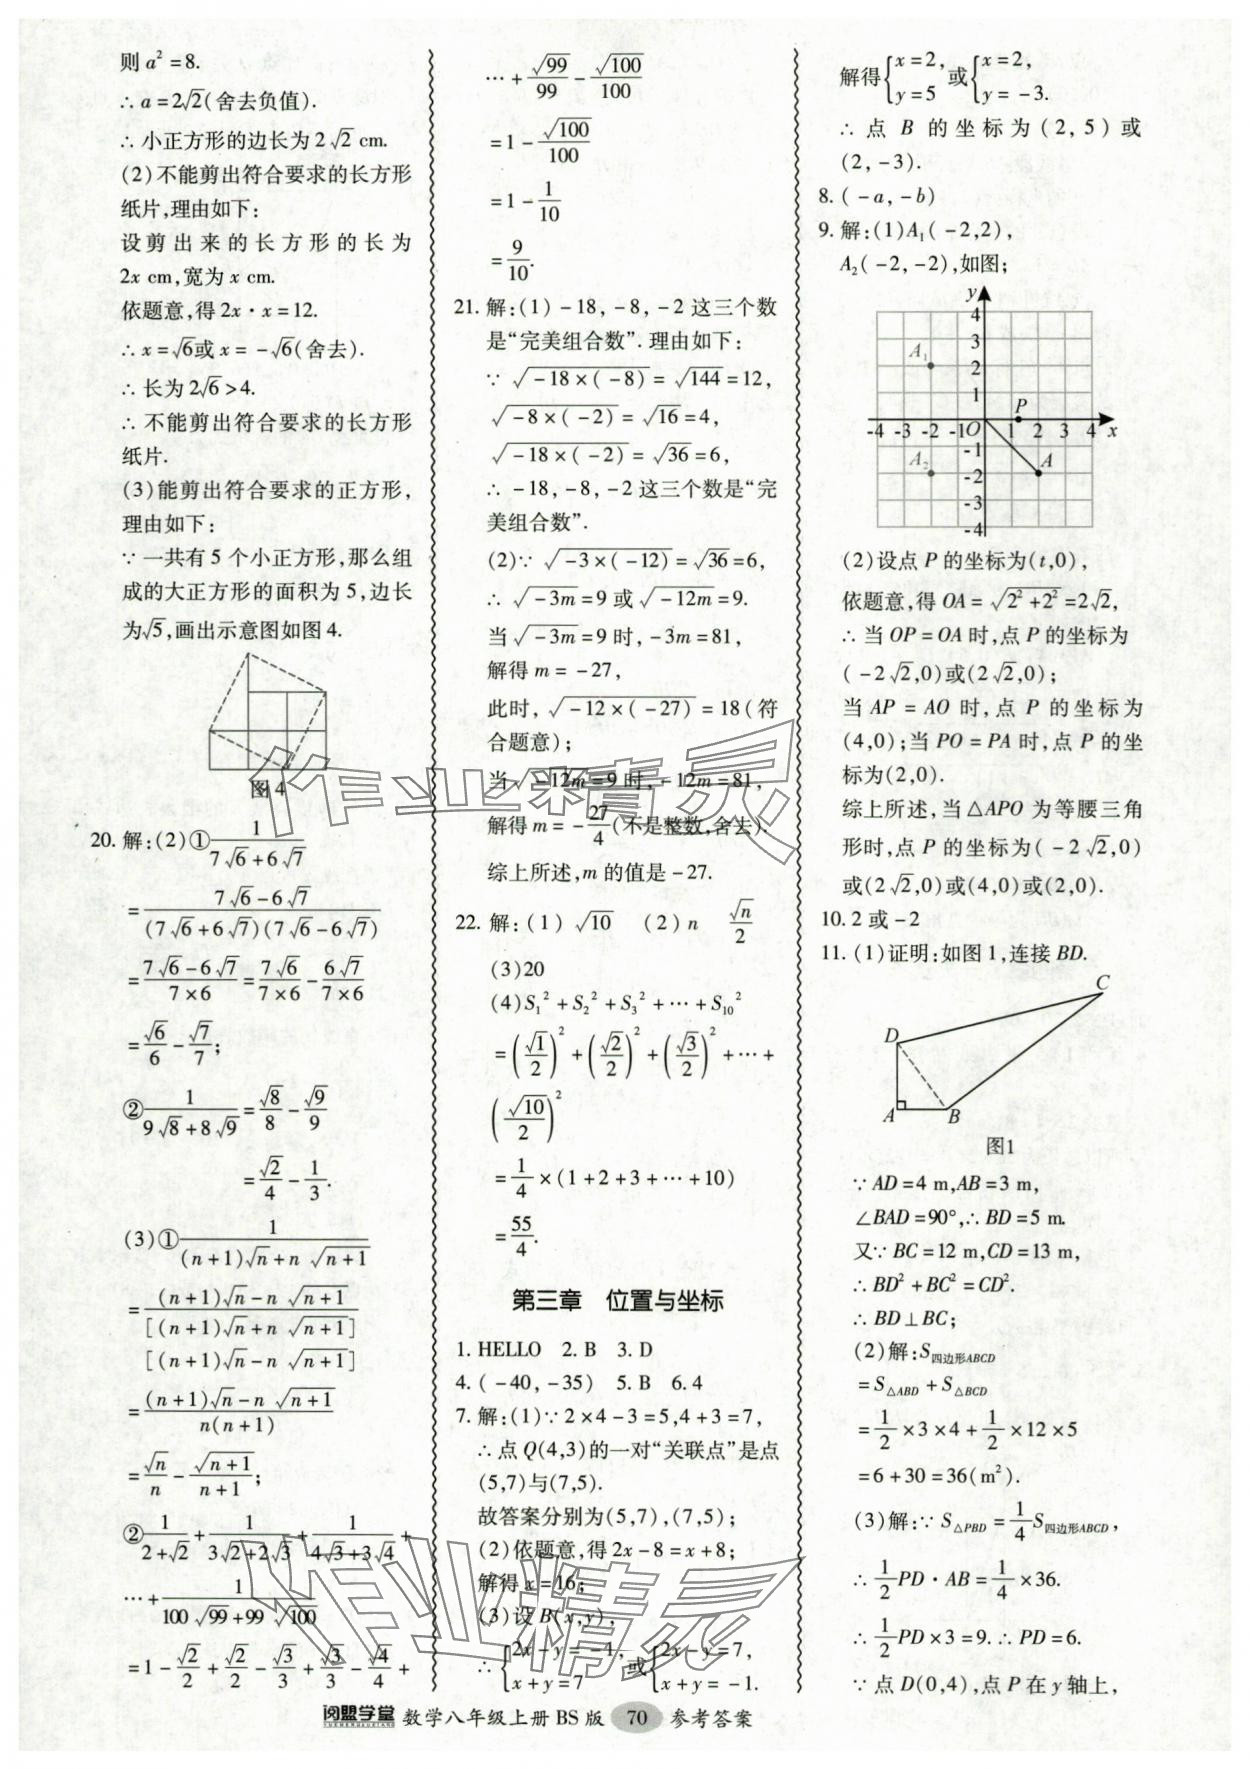 则 a²=8.
∴ a=2√2(舍去负值).
∴ 小正方形的边长为 2√2 cm.
(2)不能剪出符合要求的长方形
纸片,理由如下:
设剪出来的长方形的长为
2x cm,宽为 x cm.
依题意,得 2x·x=12.
∴ x=√6或 x=-√6(舍去).
∴ 长为 2√6>4.
∴ 不能剪出符合要求的长方形
纸片.
(3)能剪出符合要求的正方形,
理由如下:
∵ 一共有 5 个小正方形,那么组
成的大正方形的面积为 5,边长
为√5,画出示意图如图 4.
图 4
20. 解:(2)①1/(7√6+6√7)
=(7√6-6√7)/((7√6+6√7)(7√6-6√7))
=(7√6-6√7)/(7×6)=7√6/(7×6)-6√7/(7×6)
=√6/6-√7/7;
②1/(9√8+8√9)=√8/8-√9/9
=√2/4-1/3.
(3)①1/((n+1)√n+n√(n+1))
=((n+1)√n-n√(n+1))/([(n+1)√n+n√(n+1)]
[(n+1)√n-n√(n+1)])
=((n+1)√n-n√(n+1))/(n(n+1))
=√n/n-√(n+1)/(n+1);
②1/(2+√2)+1/(3√2+2√3)+1/(4√3+3√4)+
…+1/(100√99+99√100)
=1-√2/2+√2/2-√3/3+√3/3-√4/4+
…+√99/99-√100/100
=1-√100/100
=1-1/10
=9/10.
21. 解:(1)-18,-8,-2 这三个数
是“完美组合数”. 理由如下:
∵ √(-18×(-8))=√144=12,
√(-8×(-2))=√16=4,
√(-18×(-2))=√36=6,
∴ -18,-8,-2 这三个数是“完
美组合数”.
(2)∵ √(-3×(-12))=√36=6,
∴ √(-3m)=9 或√(-12m)=9.
当√(-3m)=9 时,-3m=81,
解得 m=-27,
此时,√(-12×(-27))=18(符
合题意);
当√(-12m)=9 时,-12m=81,
解得 m=-27/4(不是整数,舍去).
综上所述,m 的值是-27.
22. 解:(1)√10 (2)n √n/2
(3)20
(4)S₁²+S₂²+S₃²+…+S₁₀²
=(√1/2)²+(√2/2)²+(√3/2)²+…+
(√10/2)²
=1/4×(1+2+3+…+10)
=55/4.
第三章 位置与坐标
1. HELLO 2. B 3. D
4. (-40,-35) 5. B 6. 4
7. 解:(1)∵ 2×4-3=5,4+3=7,
∴ 点 Q(4,3)的一对“关联点”是点
(5,7)与(7,5).
故答案分别为(5,7),(7,5);
(2)依题意,得 2x-8=x+8;
解得 x=16;
(3)设 B(x,y),
∴ {2x-y=-1, x+y=7 或{2x-y=7, x+y=-1.
解得{x=2, y=5 或{x=2, y=-3.
∴ 点 B 的坐标为(2,5)或
(2,-3).
8. (-a,-b)
9. 解:(1)A₁(-2,2),
A₂(-2,-2),如图;
y
4
3
A₁ 2
1 P
-4 -3 -2 -1 O 1 2 3 4 x
-1
A₂ -2 A
-3
-4
(2)设点 P 的坐标为(t,0),
依题意,得 OA=√(2²+2²)=2√2,
∴ 当 OP=OA 时,点 P 的坐标为
(-2√2,0)或(2√2,0);
当 AP=AO 时,点 P 的坐标为
(4,0);当 PO=PA 时,点 P 的坐
标为(2,0).
综上所述,当△APO 为等腰三角
形时,点 P 的坐标为(-2√2,0)
或(2√2,0)或(4,0)或(2,0).
10. 2 或-2
11. (1)证明:如图 1,连接 BD.
C
D
A B
图1
∵ AD=4 m,AB=3 m,
∠BAD=90°,∴ BD=5 m.
又∵ BC=12 m,CD=13 m,
∴ BD²+BC²=CD².
∴ BD⊥BC;
(2)解:S四边形ABCD
=S△ABD+S△BCD
=1/2×3×4+1/2×12×5
=6+30=36(m²).
(3)解:∵ S△PBD=1/4S四边形ABCD,
∴ 1/2PD·AB=1/4×36.
∴ 1/2PD×3=9. ∴ PD=6.
∵ 点 D(0,4),点 P 在 y 轴上,
阅盟学堂 数学八年级上册 BS 版 70 参考答案
作业精灵
作业精灵